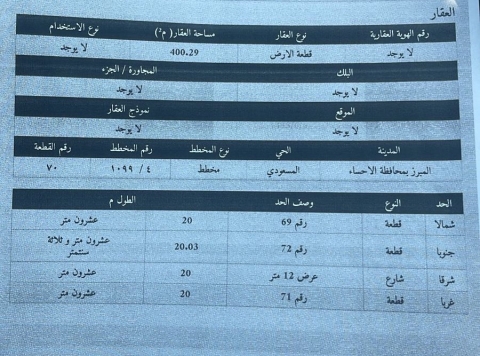 العقار
رقم الهوية العقارية نوع العقار مساحة العقار( م²) نوع الاستخدام
لا يوجد قطعة الارض 400.29 لا يوجد
البلك المجاورة / الجزء
لا يوجد لا يوجد
الموقع نموذج العقار
لا يوجد لا يوجد
المدينة الحي نوع المخطط رقم المخطط رقم القطعة
المبرز بمحافظة الاحساء المسعودي مخطط ٤ / ١٠٩٩ ٧٠
الحد النوع وصف الحد الطول م
شمالا قطعة رقم 69 20 عشرون متر
جنوبا قطعة رقم 72 20.03 عشرون متر و ثلاثة سنتمتر
شرقا شارع عرض 12 متر 20 عشرون متر
غربا قطعة رقم 71 20 عشرون متر